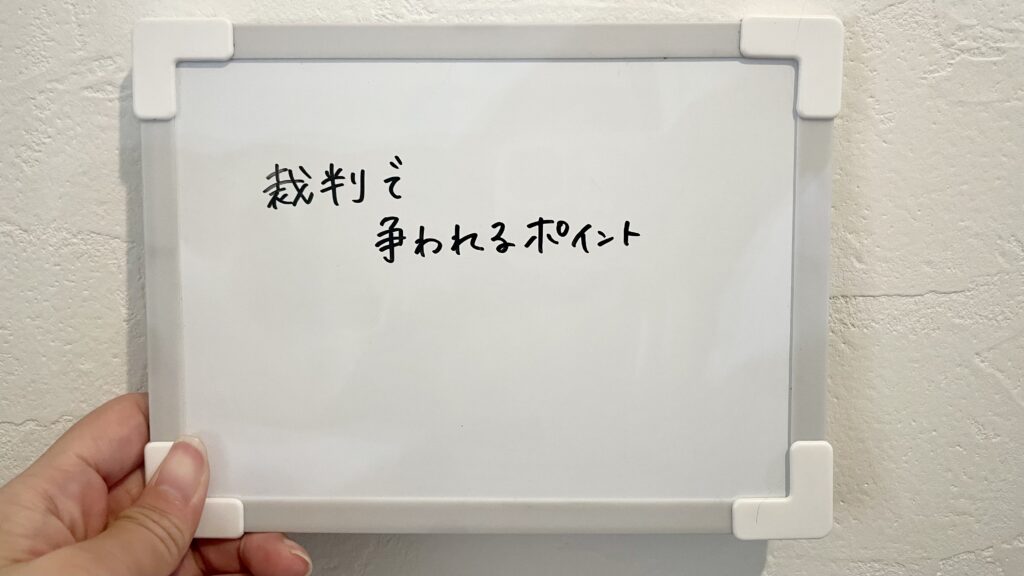 裁判で
争われるポイント